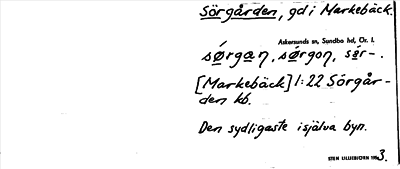 Sörgården, gd i Markebäck.
Askersunds sn, Sundbo hd, Ör. l.
sø̀rgan, sø̀rgon, sø̀r-.
[Markebäck] 1:22 Sörgår-
den kb.
Den sydligaste i själva byn.
STEN LILLIEBJÖRN 1963.